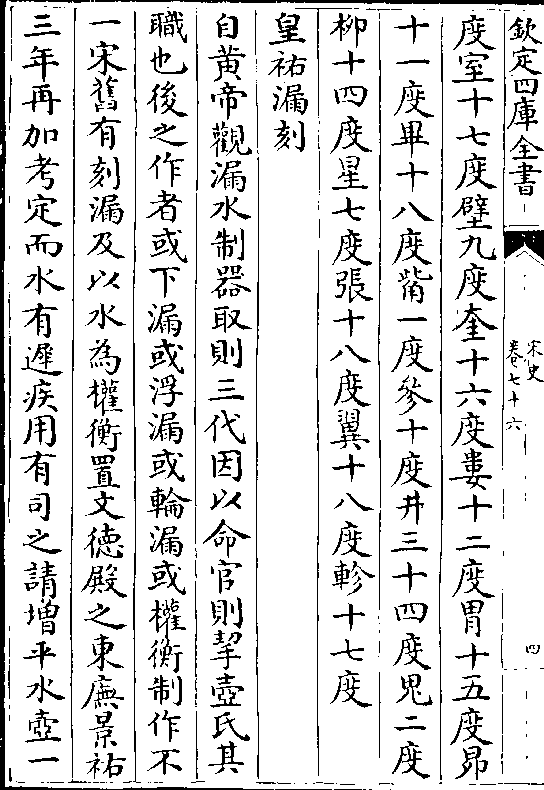 欽定四庫全書
宋史
卷七十六
四
度室十七度壁九度奎十六度婁十二度胃十五度昴
十一度畢十八度觜一度參十度井三十四度鬼二度
柳十四度星七度張十八度翼十八度軫十七度
皇祐漏刻
自黃帝觀漏水制器取則三代因以命官則挈壺氏其
職也後之作者或下漏或浮漏或輪漏或權衡制作不
一宋舊有刻漏及以水為權衡置文德殿之東廡景祐
三年再加考定而水有遲疾用有司之請增平水壺一